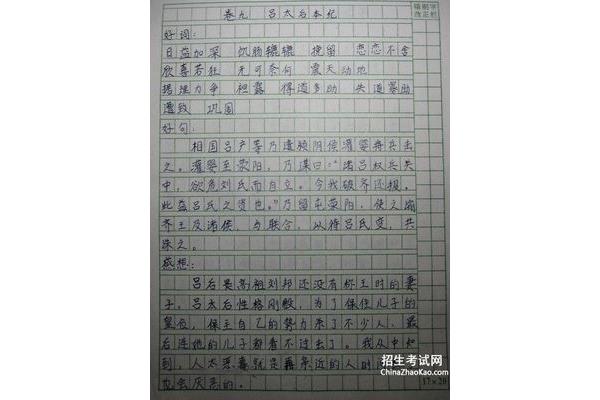 卷九 吕太后本纪
错别字
改正栏
好词:
日益加深 饥肠辘辘 挽留 恋恋不舍
欣喜若狂 无可奈何 震天动地
据理力争 袒露 得道多助 失道寡助
遭致 巩固
好句:
相国吕产等乃遣颍阴侯灌婴将兵击
之。灌婴至荥阳,乃谋曰:"诸吕权兵关
中,欲危刘氏而自立。今我破齐还报,
此益吕氏之资也。"乃留屯荥阳,使使谕
齐王及诸侯,与联合,以待吕氏变,共
诛之。
感想:
吕后是高祖刘邦还没有称王时的妻
子。吕太后性格刚毅,为了保住儿子的
皇位,保主自己的势力杀了不少人,最
后连她的儿子都看不过去了。我从中知
到,人太恶毒就是再亲近的人时
也会厌恶的。
17×20
招生考试网
ChinaZhaoKao.com